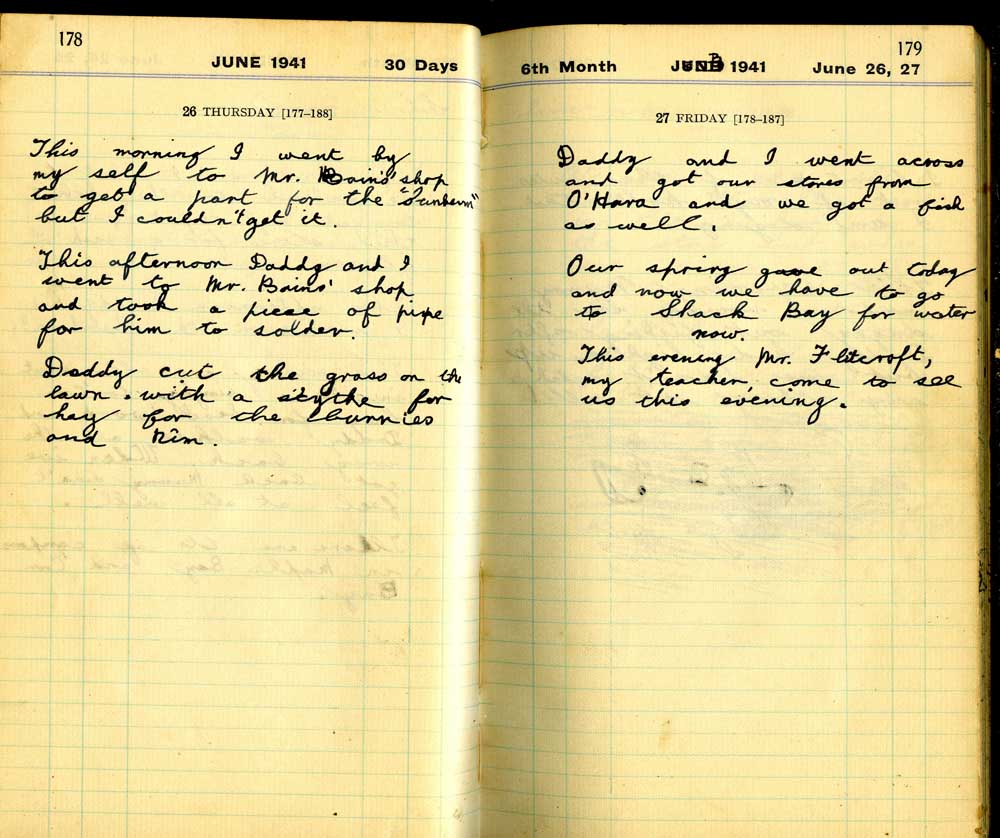 178
JUNE 1941 30 Days
26 THURSDAY [177–188]
This morning I went by
my self to Mr. Bains' shop
to get a part for the "Sunbeam"
but I couldn't get it.
This afternoon Daddy and I
went to Mr. Bains' shop
and took a piece of pipe
for him to solder.
Daddy cut the grass on the
lawn. with a scythe for
hay for the bunnies
and Nim.
179
6th Month JUNE 1941 June 26, 27
27 FRIDAY [178–187]
Daddy and I went across
and got our stores from
O'Hara and we got a fish
as well.
Our spring gave out today
and now we have to go
to Shack Bay for water
now.
This evening Mr. Flitcroft,
my teacher, come to see
us this evening.